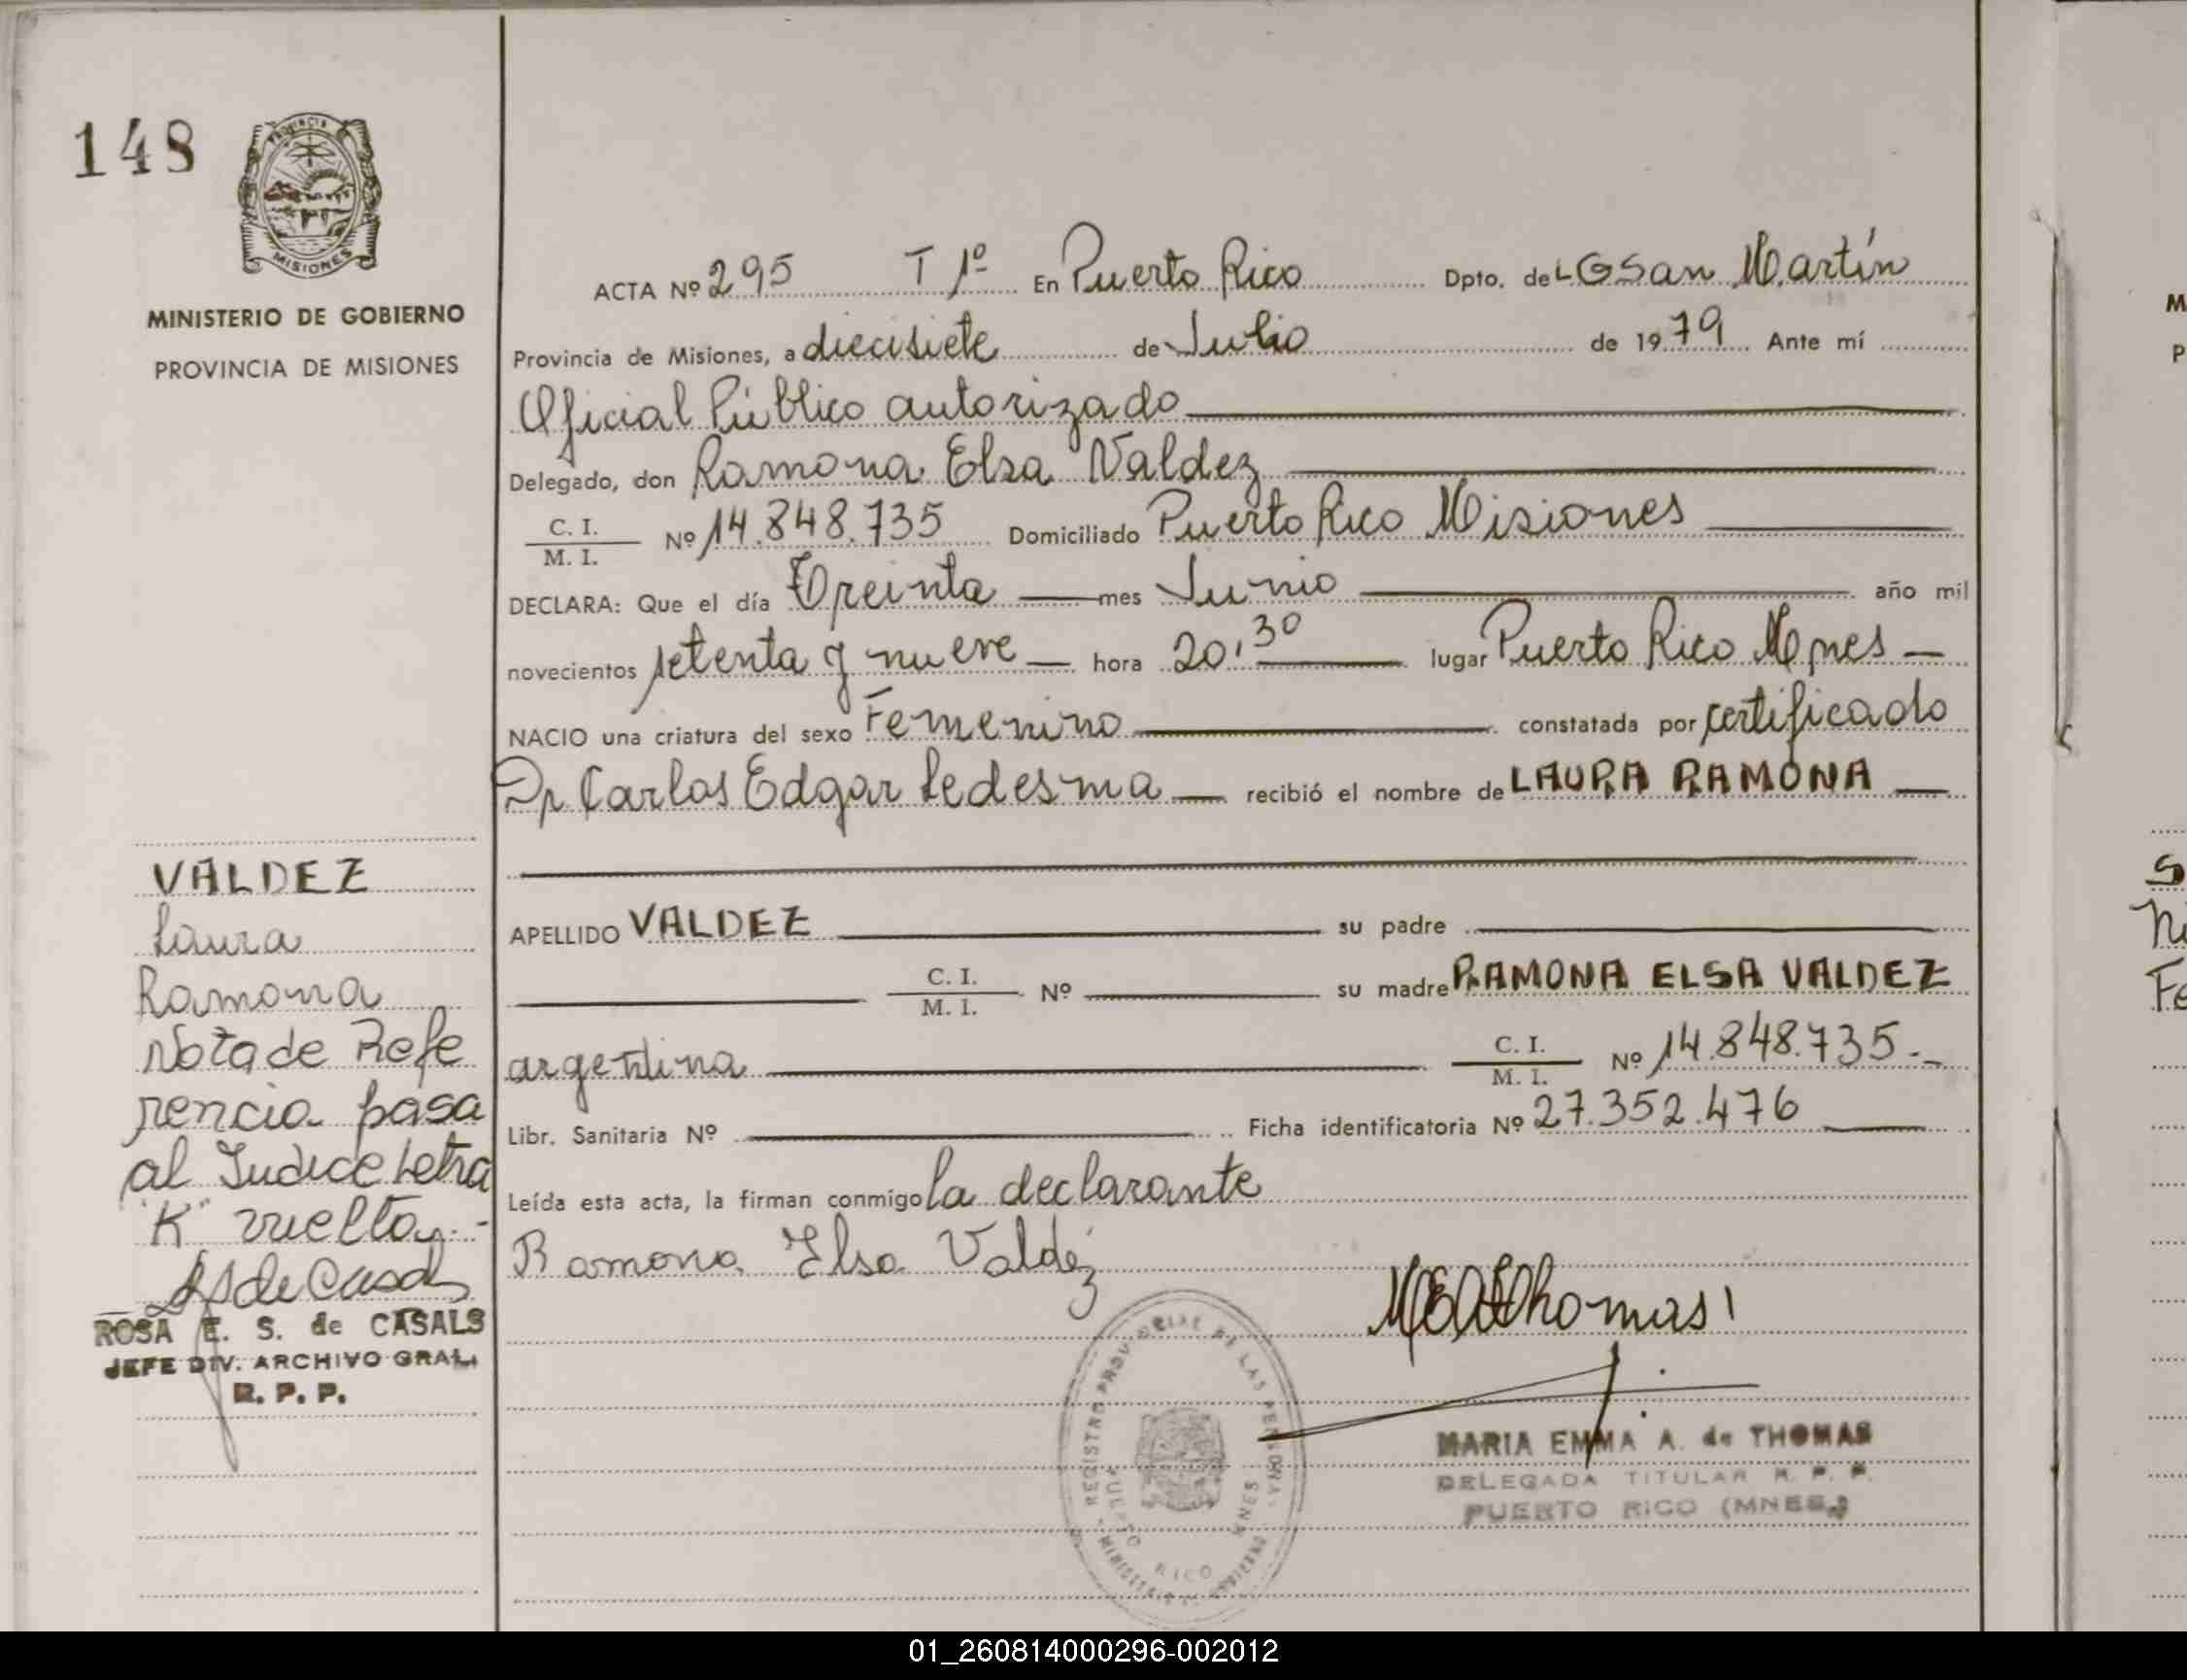 148
PROVINCIA
MISIONES
MINISTERIO DE GOBIERNO
PROVINCIA DE MISIONES
VALDEZ
Laura
Ramona
Nota de Refe
rencia pasa
al Indice Letra
"K" vuelta.-
ROSA E. S. de CASALS
JEFE DIV. ARCHIVO GRAL.
R. P. P.
ACTA Nº 295 T 1º En Puerto Rico Dpto. de LGSan Martín
Provincia de Misiones, a diecisiete de Julio de 1979 Ante mí
Oficial Público autorizado
Delegado, don Ramona Elsa Valdez
C. I.
M. I. Nº 14.848.735 Domiciliado Puerto Rico Misiones
DECLARA: Que el día Treinta mes Junio año mil
novecientos setenta y nueve hora 20,30 lugar Puerto Rico Mnes
NACIO una criatura del sexo Femenino constatada por certificado
Dr Carlos Edgar Ledesma recibió el nombre de LAURA RAMONA
APELLIDO VALDEZ su padre
C. I.
M. I. Nº su madre RAMONA ELSA VALDEZ
argentina C. I.
M. I. Nº 14.848.735.-
Libr. Sanitaria Nº Ficha identificatoria Nº 27.352.476
Leída esta acta, la firman conmigo la declarante
Ramona Elsa Valdez
REGISTRO PROVINCIAL DE LAS PERSONAS
PUERTO RICO MNES
MINISTERIO DE GOBIERNO
MARIA EMMA A. de THOMAS
DELEGADA TITULAR R. P. P.
PUERTO RICO (MNES.)
01_260814000296-002012